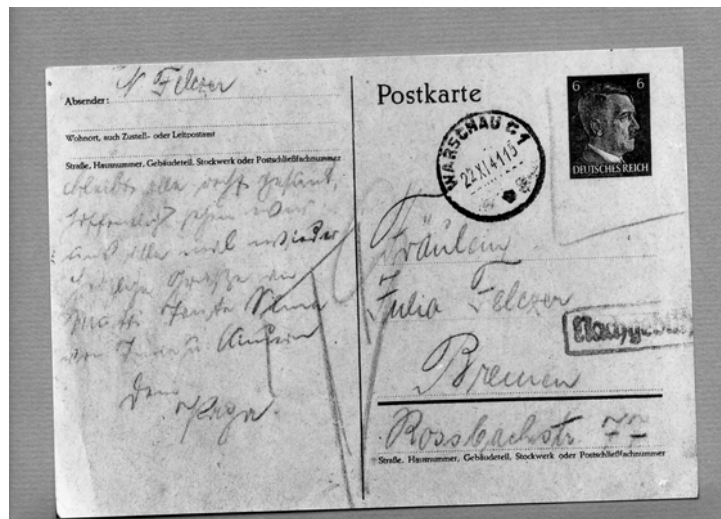 N Felczer
Absender:
Wohnort, auch Zustell- oder Leitpostamt
Straße, Hausnummer, Gebäudeteil, Stockwerk oder Postschließfachnummer
bleibt alle recht gesund,
hoffentlich sehen wir
uns alle mal wieder
Grüße an
Mutti Tante
von
Dein
Papa
Postkarte
WARSCHAU C1
22.XI.41.15
6 6
DEUTSCHES REICH
Fräulein
Julia Felczer
Bremen
Rossbachstr 77
Straße, Hausnummer, Gebäudeteil, Stockwerk oder Postschließfachnummer